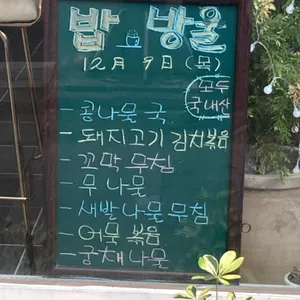 밥 방울
12月 9日 (목)
모두
국내산
- 콩나물 국
- 돼지고기 김치볶음
- 꼬막 무침
- 무 나물
- 새발 나물 무침
- 어묵 볶음
- 궁채 나물